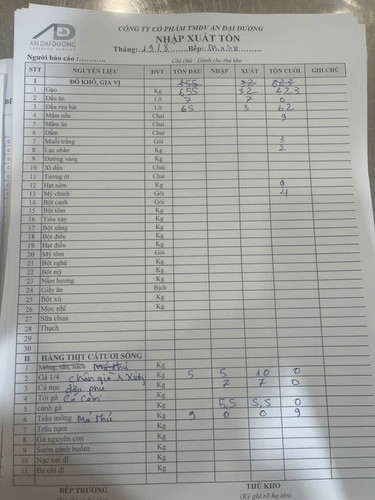 AD
AN DAI DUONG
CÔNG TY CỔ PHẦN TMDV AN ĐẠI DƯƠNG
NHẬP XUẤT TỒN
Tháng: 19/8 Bếp:
Người báo cáo: Ghi chú : Dành cho thu kho
STT NGUYÊN LIỆU ĐVT TỒN ĐẦU NHẬP XUẤT TỒN CUỐI GHI CHÚ
I ĐỒ KHÔ, GIA VỊ 655 32 623
1 Gạo Kg 655 32 623
2 Dầu ăn Lít 7 7 0
3 Dầu rửa bát Lít 65 3 62
4 Mắm nấu Chai 9
5 Mắm ăn Chai
6 Dấm Chai
7 Muối trắng Gói 3
8 Lạc nhân Kg 2
9 Đường vàng Kg
10 Xì dầu Chai
11 Tương ớt Chai
12 Hạt nêm Kg 9
13 Mỳ chính Gói 4
14 Bột canh Gói
15 Bột tôm Kg
16 Tiêu xay Kg
17 Bột năng Kg
18 Bột điều Kg
19 Hạt điều Kg
20 Mỳ tôm Gói
21 Bột nghệ Kg
22 Bột mỳ Kg
23 Nấm hương Kg
24 Giấy ăn Bịch
25 Bột xù Kg
26 Mọc nhĩ Kg
27 Sữa chua
28 Thạch
29
30
II HÀNG THỊT CÁ TƯƠI SỐNG Kg
1 Mông, sấn, nách Kg
2 Gà 1/4 chân giò Kg 5 5 10 0
3 Cá nục đậu phụ Kg 7 7 0
4 Tỏi gà Cá Cơm Kg
5 cánh gà Kg 5,5 5,5 0
6 Trâu mông Má thủ Kg 9 0 0 9
7 Trâu nạm Kg
8 Gà nguyên con Kg
9 Sườn cánh buồm Kg
10 Nạc vai dl Kg
11 Ba chỉ dl Kg
BẾP TRƯỞNG THỦ KHO
(Ký ghi rõ họ tên)